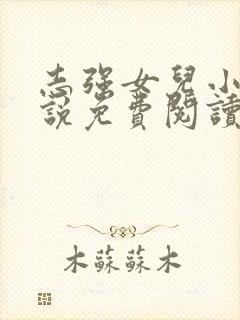 志强女兒小
說免費閱讀
木蘇蘇木